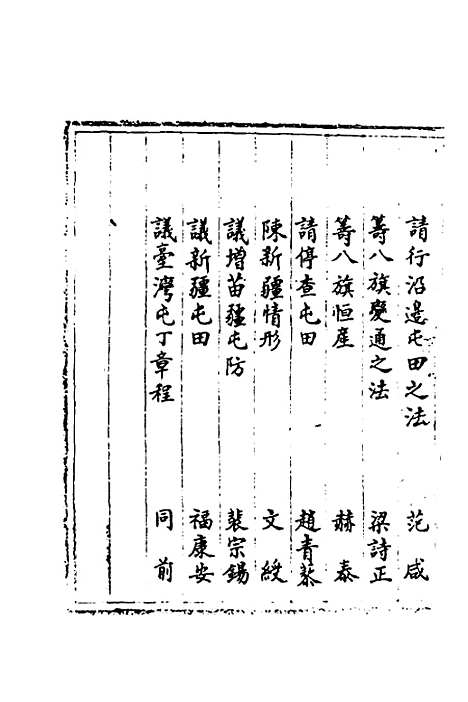 請行沿邊屯田之法 范咸
籌八旗變通之法 梁詩正
籌八旗恒產 赫泰
請停查屯田 趙青藜
陳新疆情形 文綬
議增苗疆屯防 裴宗錫
議新疆屯田 福康安
議臺灣屯丁章程 同前